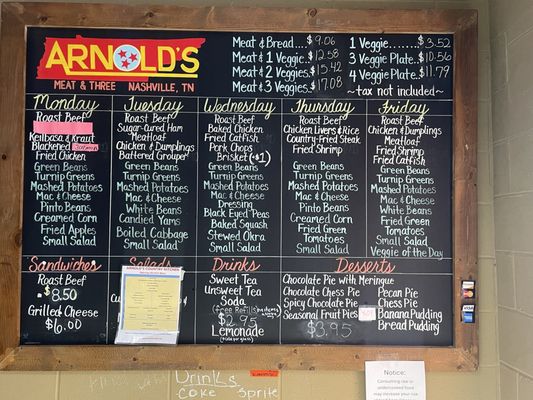 ARNOLD'S
MEAT & THREE NASHVILLE, TN
Meat & Bread $9.06
Meat & 1 Veggie $12.58
Meat & 2 Veggies $15.42
Meat & 3 Veggies $17.08
1 Veggie $3.52
3 Veggie Plate $10.56
4 Veggie Plate $11.79
~tax not included~
Monday
Roast Beef
Keilbasa & Kraut
Blackened
Fried Chicken
Green Beans
Turnip Greens
Mashed Potatoes
Mac & Cheese
Pinto Beans
Creamed Corn
Fried Apples
Small Salad
Tuesday
Roast Beef
Sugar-Cured Ham
Meatloaf
Chicken & Dumplings
Battered Grouper
Green Beans
Turnip Greens
Mashed Potatoes
Mac & Cheese
White Beans
Candied Yams
Boiled Cabbage
Small Salad
Wednesday
Roast Beef
Baked Chicken
Fried Catfish
Pork Chops
Brisket (+$1)
Green Beans
Turnip Greens
Mashed Potatoes
Mac & Cheese
Dressing
Black Eyed Peas
Baked Squash
Stewed Okra
Small Salad
Thursday
Roast Beef
Chicken Livers & Rice
Country-Fried Steak
Fried Shrimp
Green Beans
Turnip Greens
Mashed Potatoes
Mac & Cheese
Pinto Beans
Creamed Corn
Fried Green
Tomatoes
Small Salad
Friday
Roast Beef
Chicken & Dumplings
Meatloaf
Fried Shrimp
Fried Catfish
Green Beans
Turnip Greens
Mashed Potatoes
Mac & Cheese
White Beans
Fried Green
Tomatoes
Small Salad
Veggie of the Day
Sandwiches
Roast Beef
$8.50
Grilled Cheese
$6.00
Salads
ARNOLD'S COUNTRY KITCHEN
Drinks
Sweet Tea
Unsweet Tea
Soda
(free Refills)
$2.95
Lemonade
Desserts
Chocolate Pie with Meringue
Chocolate Chess Pie
Spicy Chocolate Pie
Seasonal Fruit Pies
$3.95
Pecan Pie
Chess Pie
Banana Pudding
Bread Pudding
VISA
Drinks
Coke Sprite
Notice:
Consuming raw or
undercooked food
may increase your risk